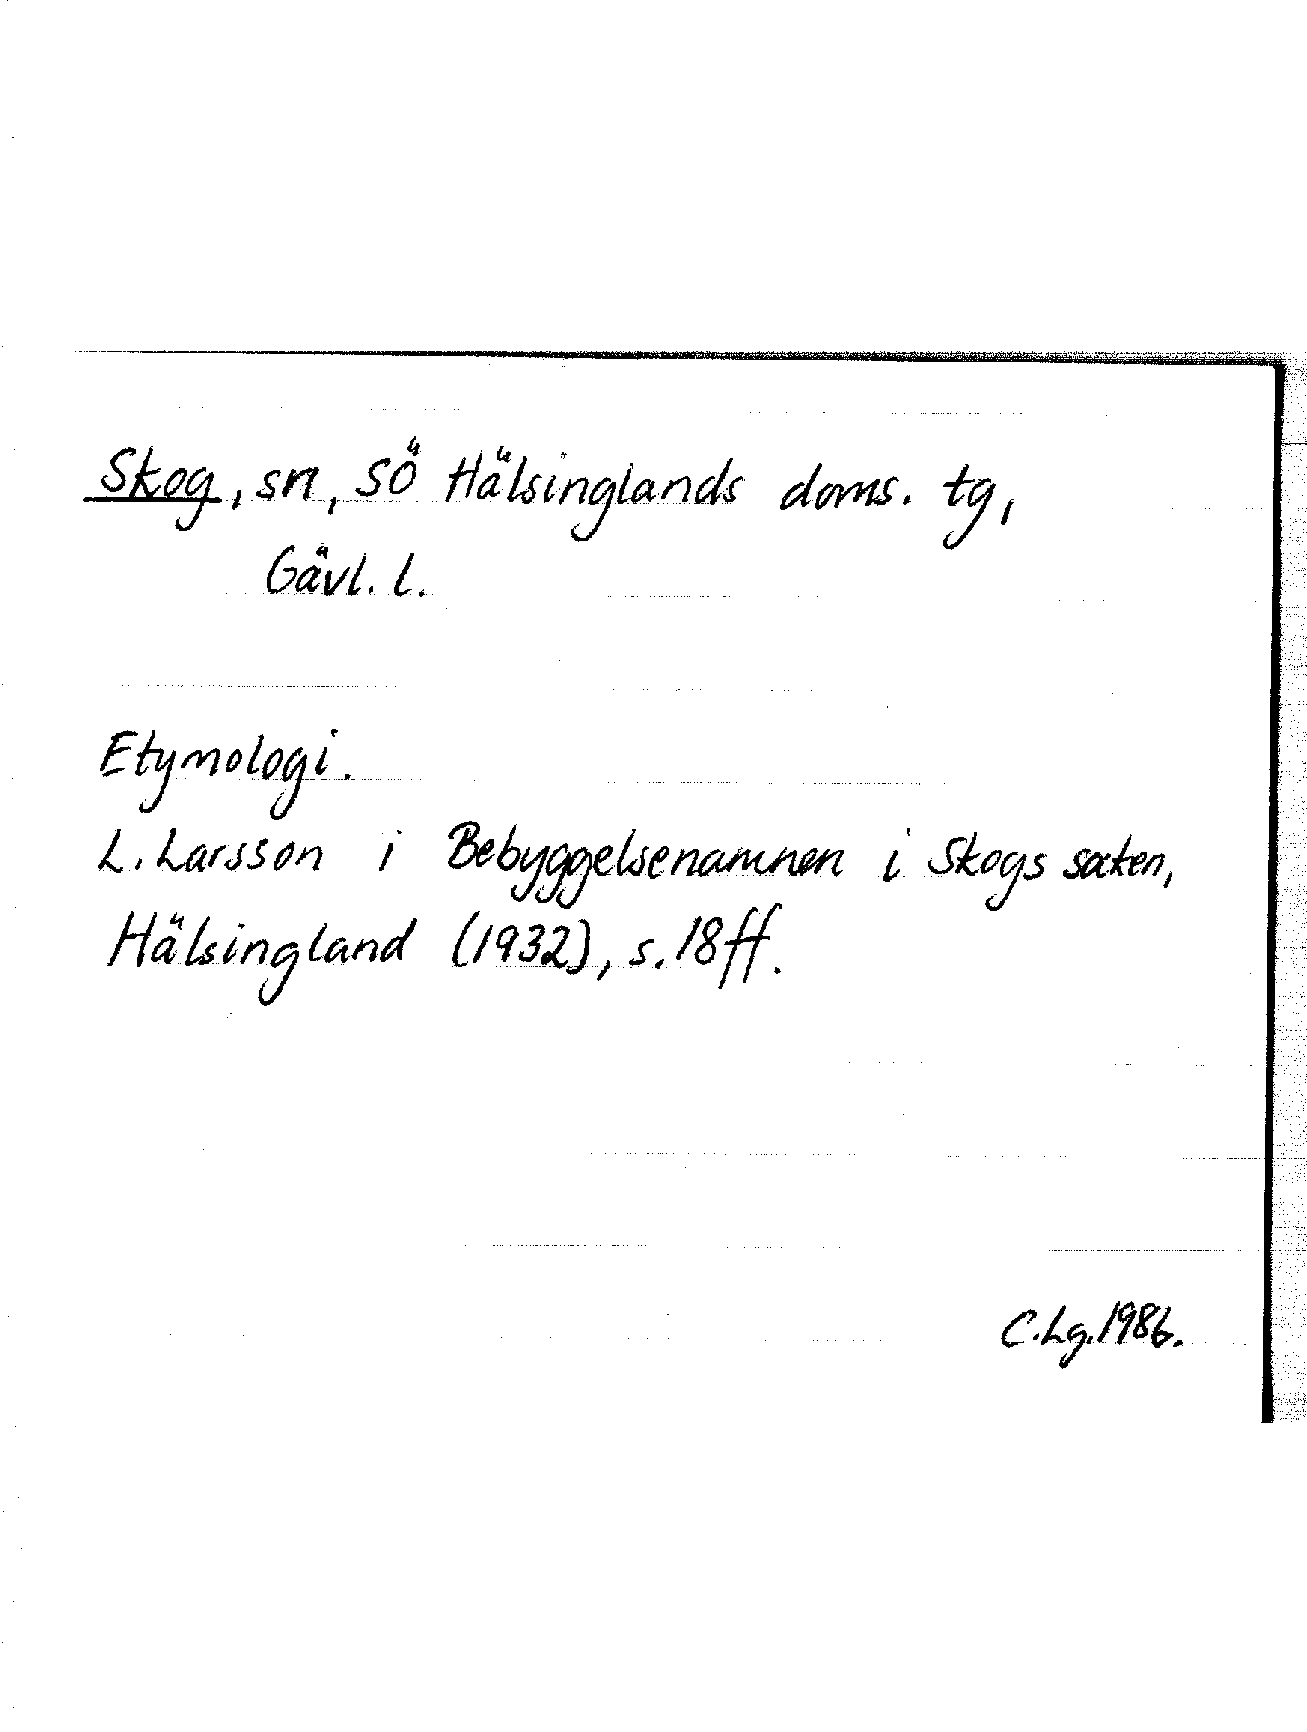 Skog, sn, SÖ Hälsinglands doms. tg,
Gävl. l.
Etymologi.
L. Larsson i Bebyggelsenamnen i Skogs socken,
Hälsingland (1932), s. 18 ff.
C. Lg. 1986.